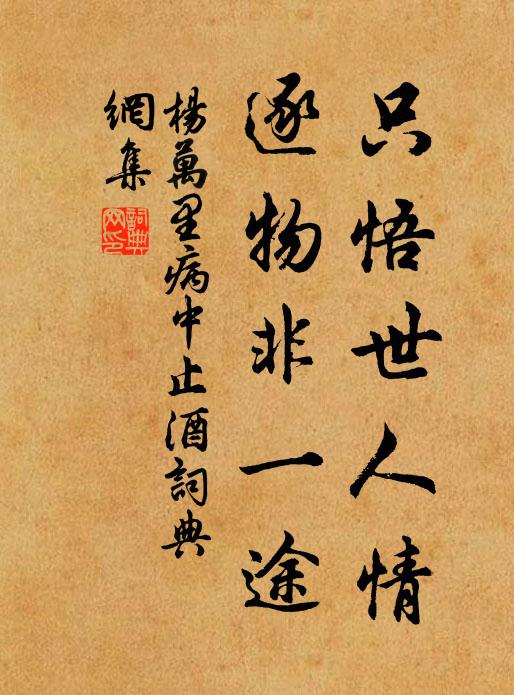 只悟世人情
逐物非一途
楊萬里病中止酒詞典
網集
詞典
网印